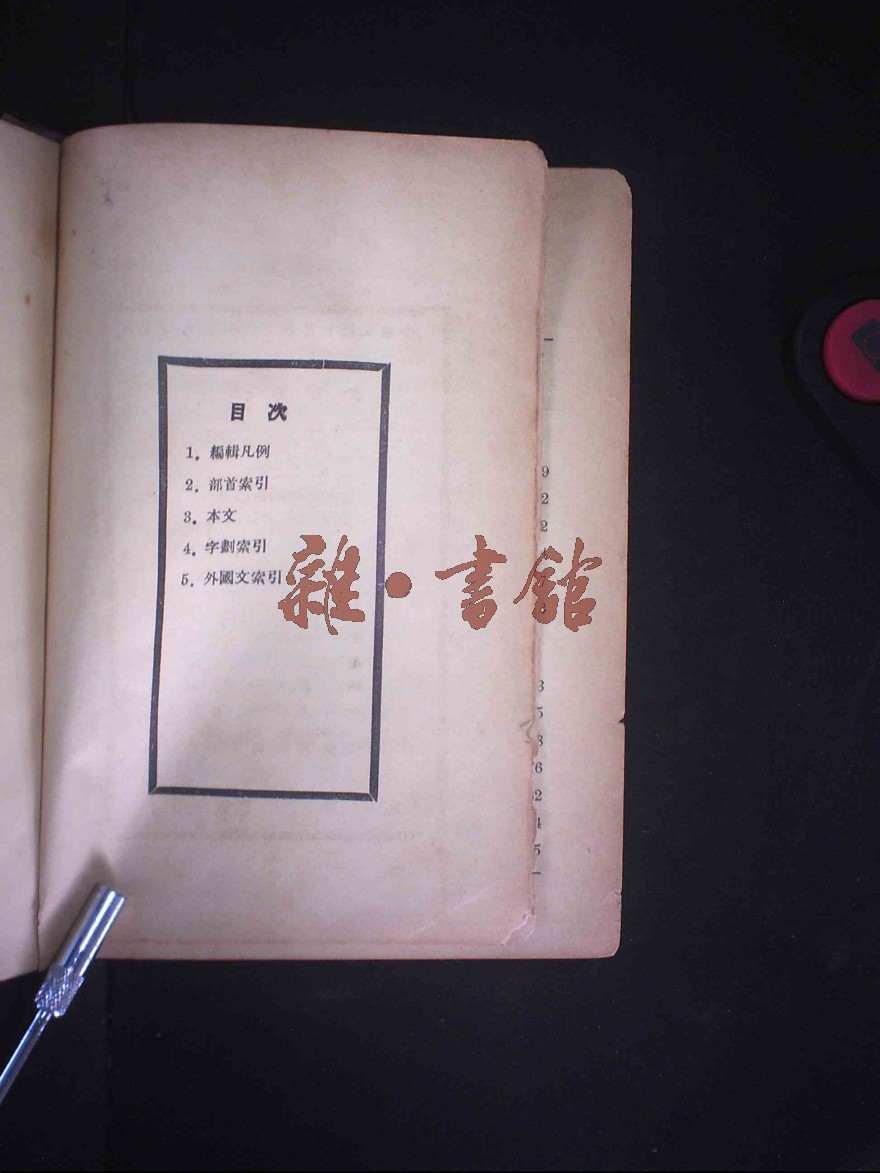 目次
1. 編輯凡例
2. 部首索引
3. 本文
4. 字劃索引
5. 外國文索引
雜·書館
9
2
2
3
5
8
76
4
5